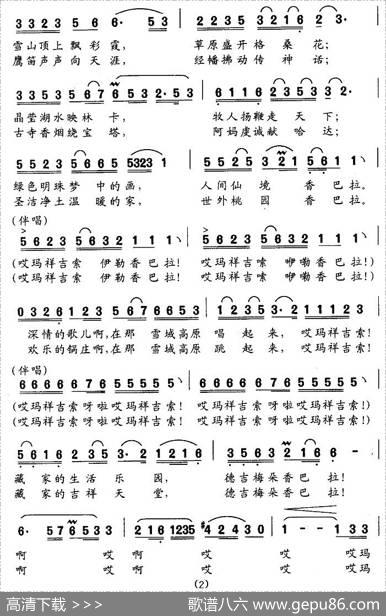 3 3 2 3 5 5 6 6· 5 3 | 2 2 3 5 3 2 1 6 2· 3 |
雪山顶上飘彩霞, 草原盛开格桑花;
鹰笛声声向天涯, 经幡拂动传神话;
3 3 5 3 5 6 7 6 5 3 2· 5 3 | 6 1 1 6 2 3 5 3 2 2 |
晶莹湖水映林卡, 牧人扬鞭走天下;
古寺香烟绕宝塔, 阿妈虔诚献哈达;
5 5 2 3 5 6 5 5323 1 | 5 5 2 3 5 3 21 5 6 1 1 |
绿色明珠梦中的画, 人间仙境香巴拉,
圣洁净土温暖的家, 世外桃园香巴拉。
(伴唱)
5 6 2 3 5 6 3 2 1 1 1 | 5 6 2 3 5 6 3 2 1 1 1 |
(哎玛祥吉索 伊勒香巴拉! 哎玛祥吉索 咿嘞香巴拉!)
(哎玛祥吉索 伊勒香巴拉! 哎玛祥吉索 咿嘞香巴拉!)
0 3 2 6 1 0 5 6 7 6 6 5 3 | 1 2 3 5 3· 2 1 1 1 2 3 |
深情的歌儿啊,在那 雪域高原 唱起来, 哎玛祥吉索!
欢乐的锅庄啊,在那 雪域高原 跳起来, 哎玛祥吉索!
(伴唱)
6 6 6 6 6 7 6 5 5 5 5 5 | 6 6 6 6 6 7 6 5 5 5 5 5 |
(哎玛祥吉索呀啦哎玛祥吉索! 哎玛祥吉索呀啦哎玛祥吉索!)
(哎玛祥吉索呀啦哎玛祥吉索! 哎玛祥吉索呀啦哎玛祥吉索!)
5 6 1 6 2 3 5 3· 2 1 2 | 3 5 6 3 2 1 6 6 - |
藏家的生活乐园, 德吉梅朵香巴拉!
藏家的吉祥天堂, 德吉梅朵香巴拉!
6· 5 7 6 5 3 3 | 2 1 6 1235 #4 2 4 3 0 | 1 - 1 3 3 |
啊 哎 啊 哎 哎 哎玛
啊 哎 啊 哎 哎 哎玛
(2)
高清下载 >>> 歌谱八六 www.gepu86.com